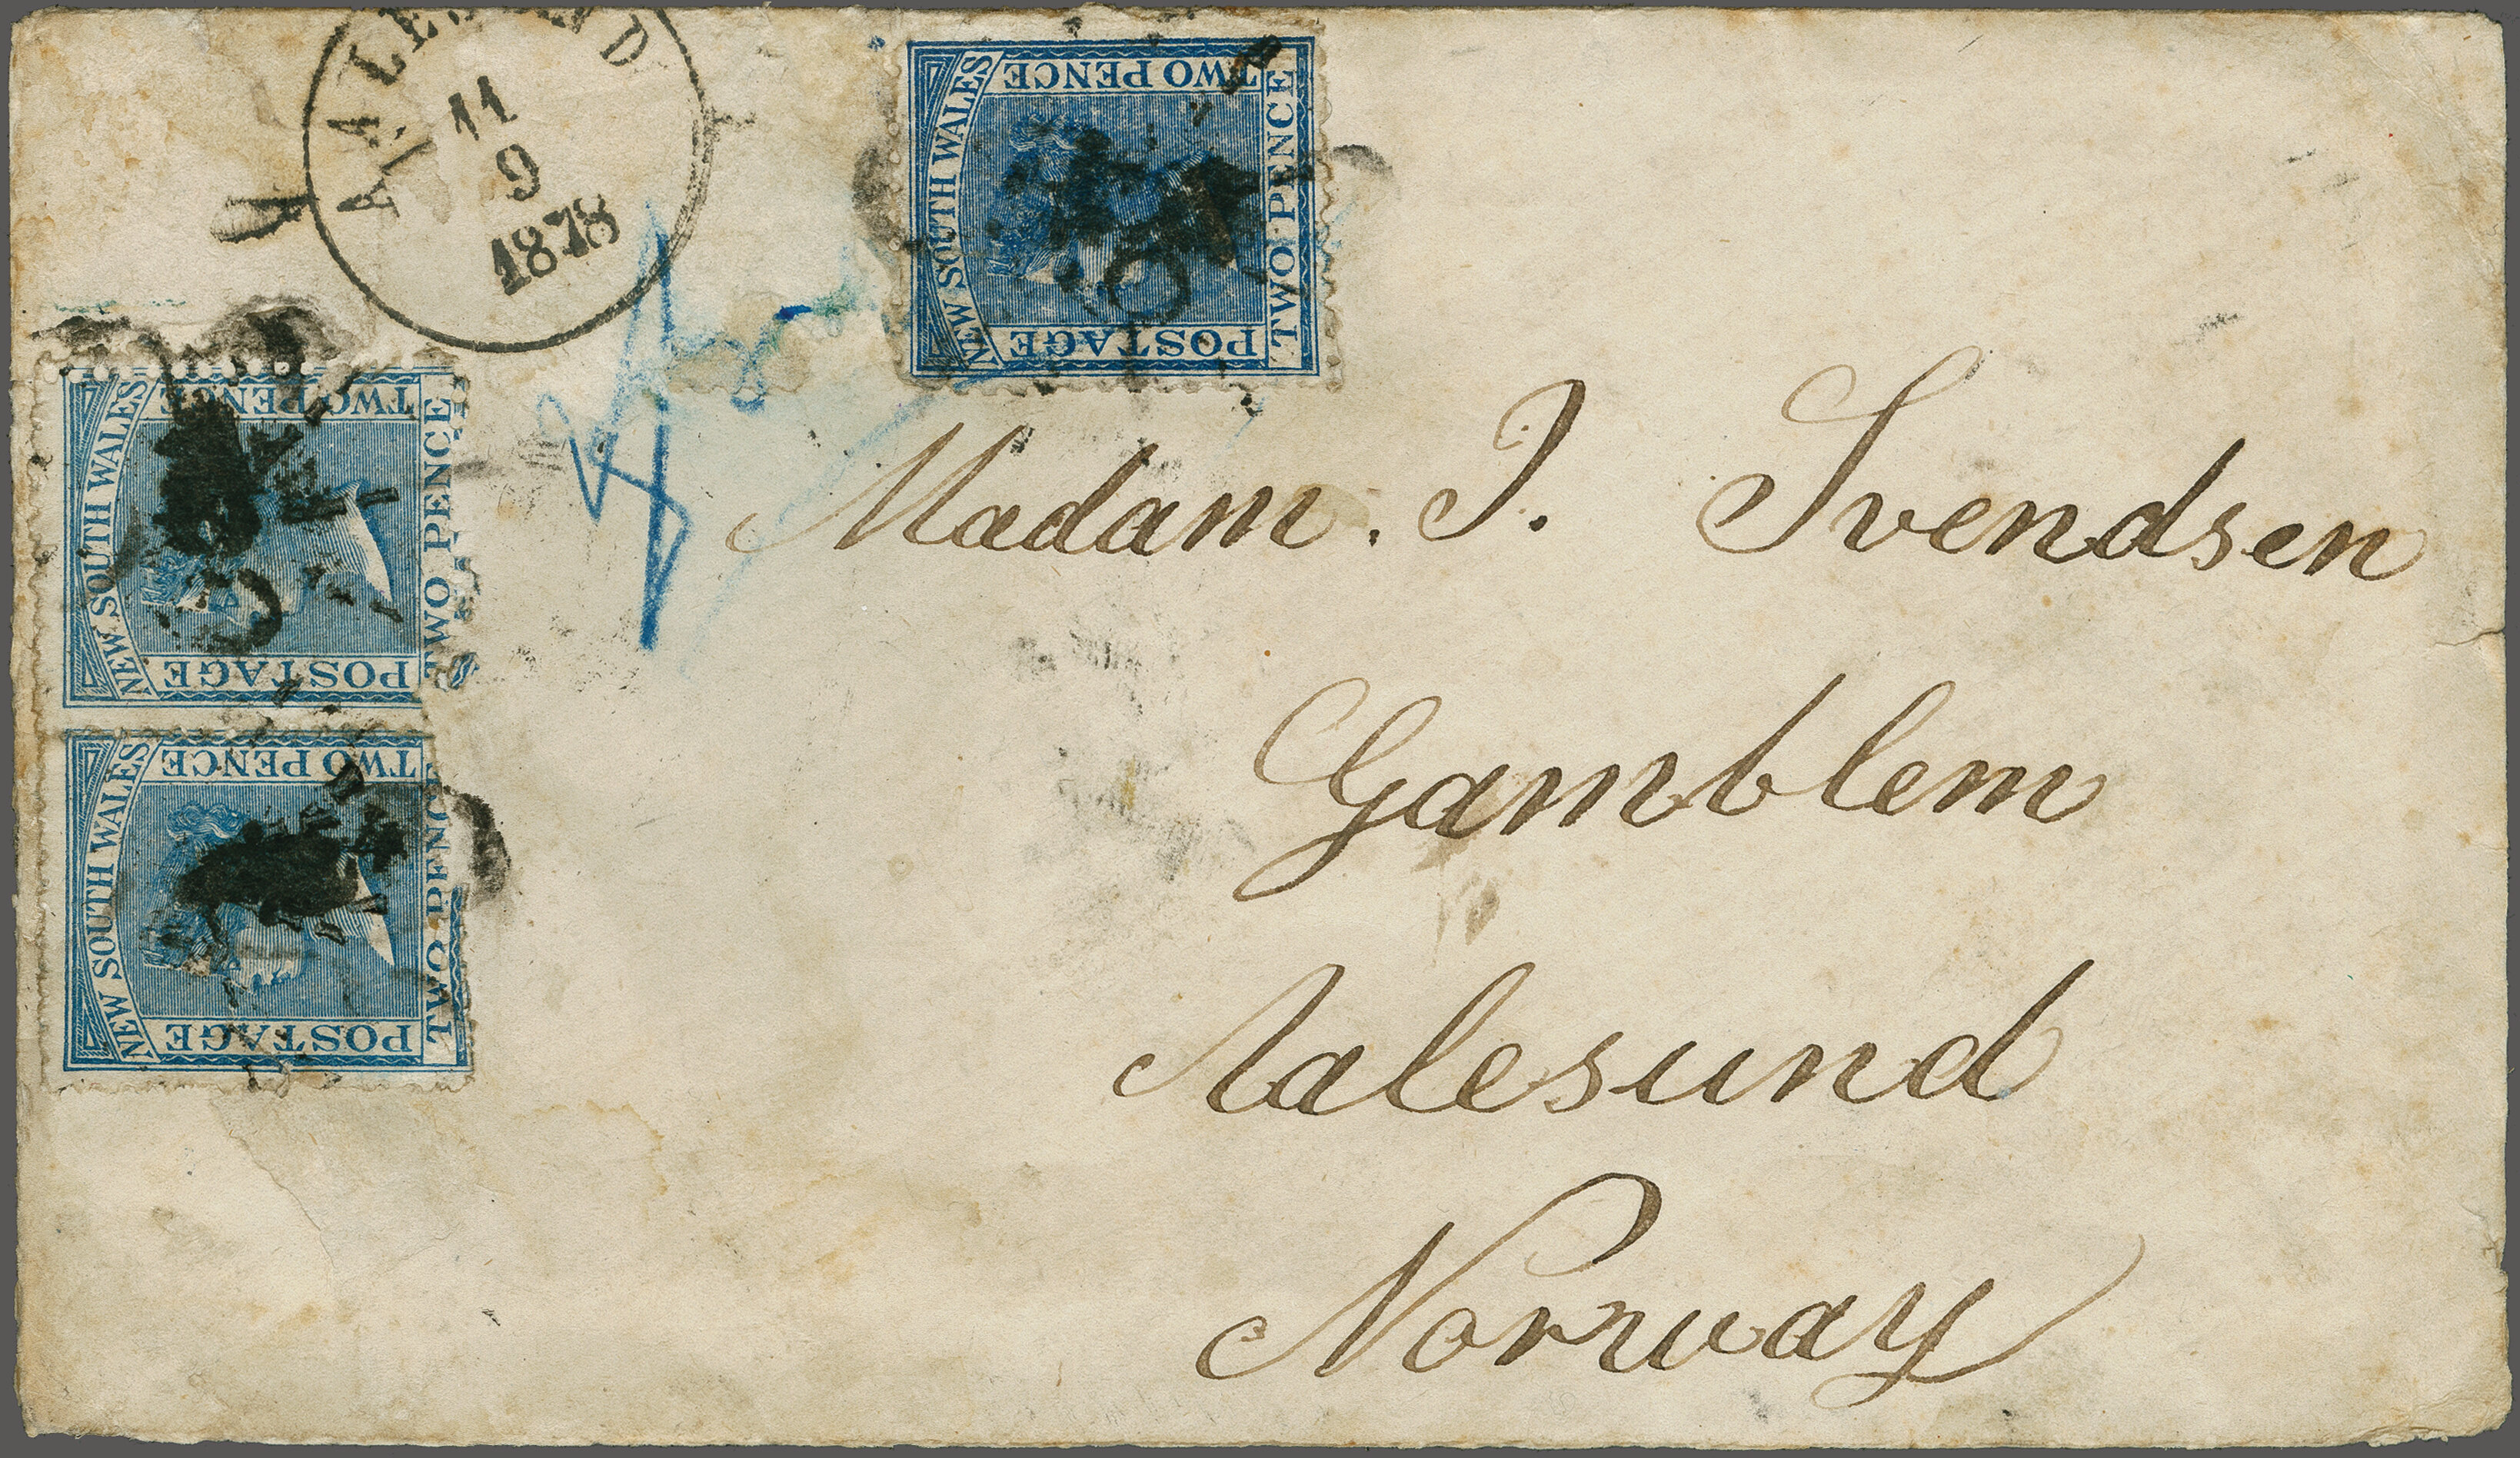 AALESUND
11
9
1878
NEW SOUTH WALES
TWO PENCE
TWO PENCE
POSTAGE
NEW SOUTH WALES
TWO PENCE
TWO PENCE
POSTAGE
NEW SOUTH WALES
TWO PENCE
TWO PENCE
POSTAGE
Madam. J. Svendsen
Gamblem
Aalesund
Norway